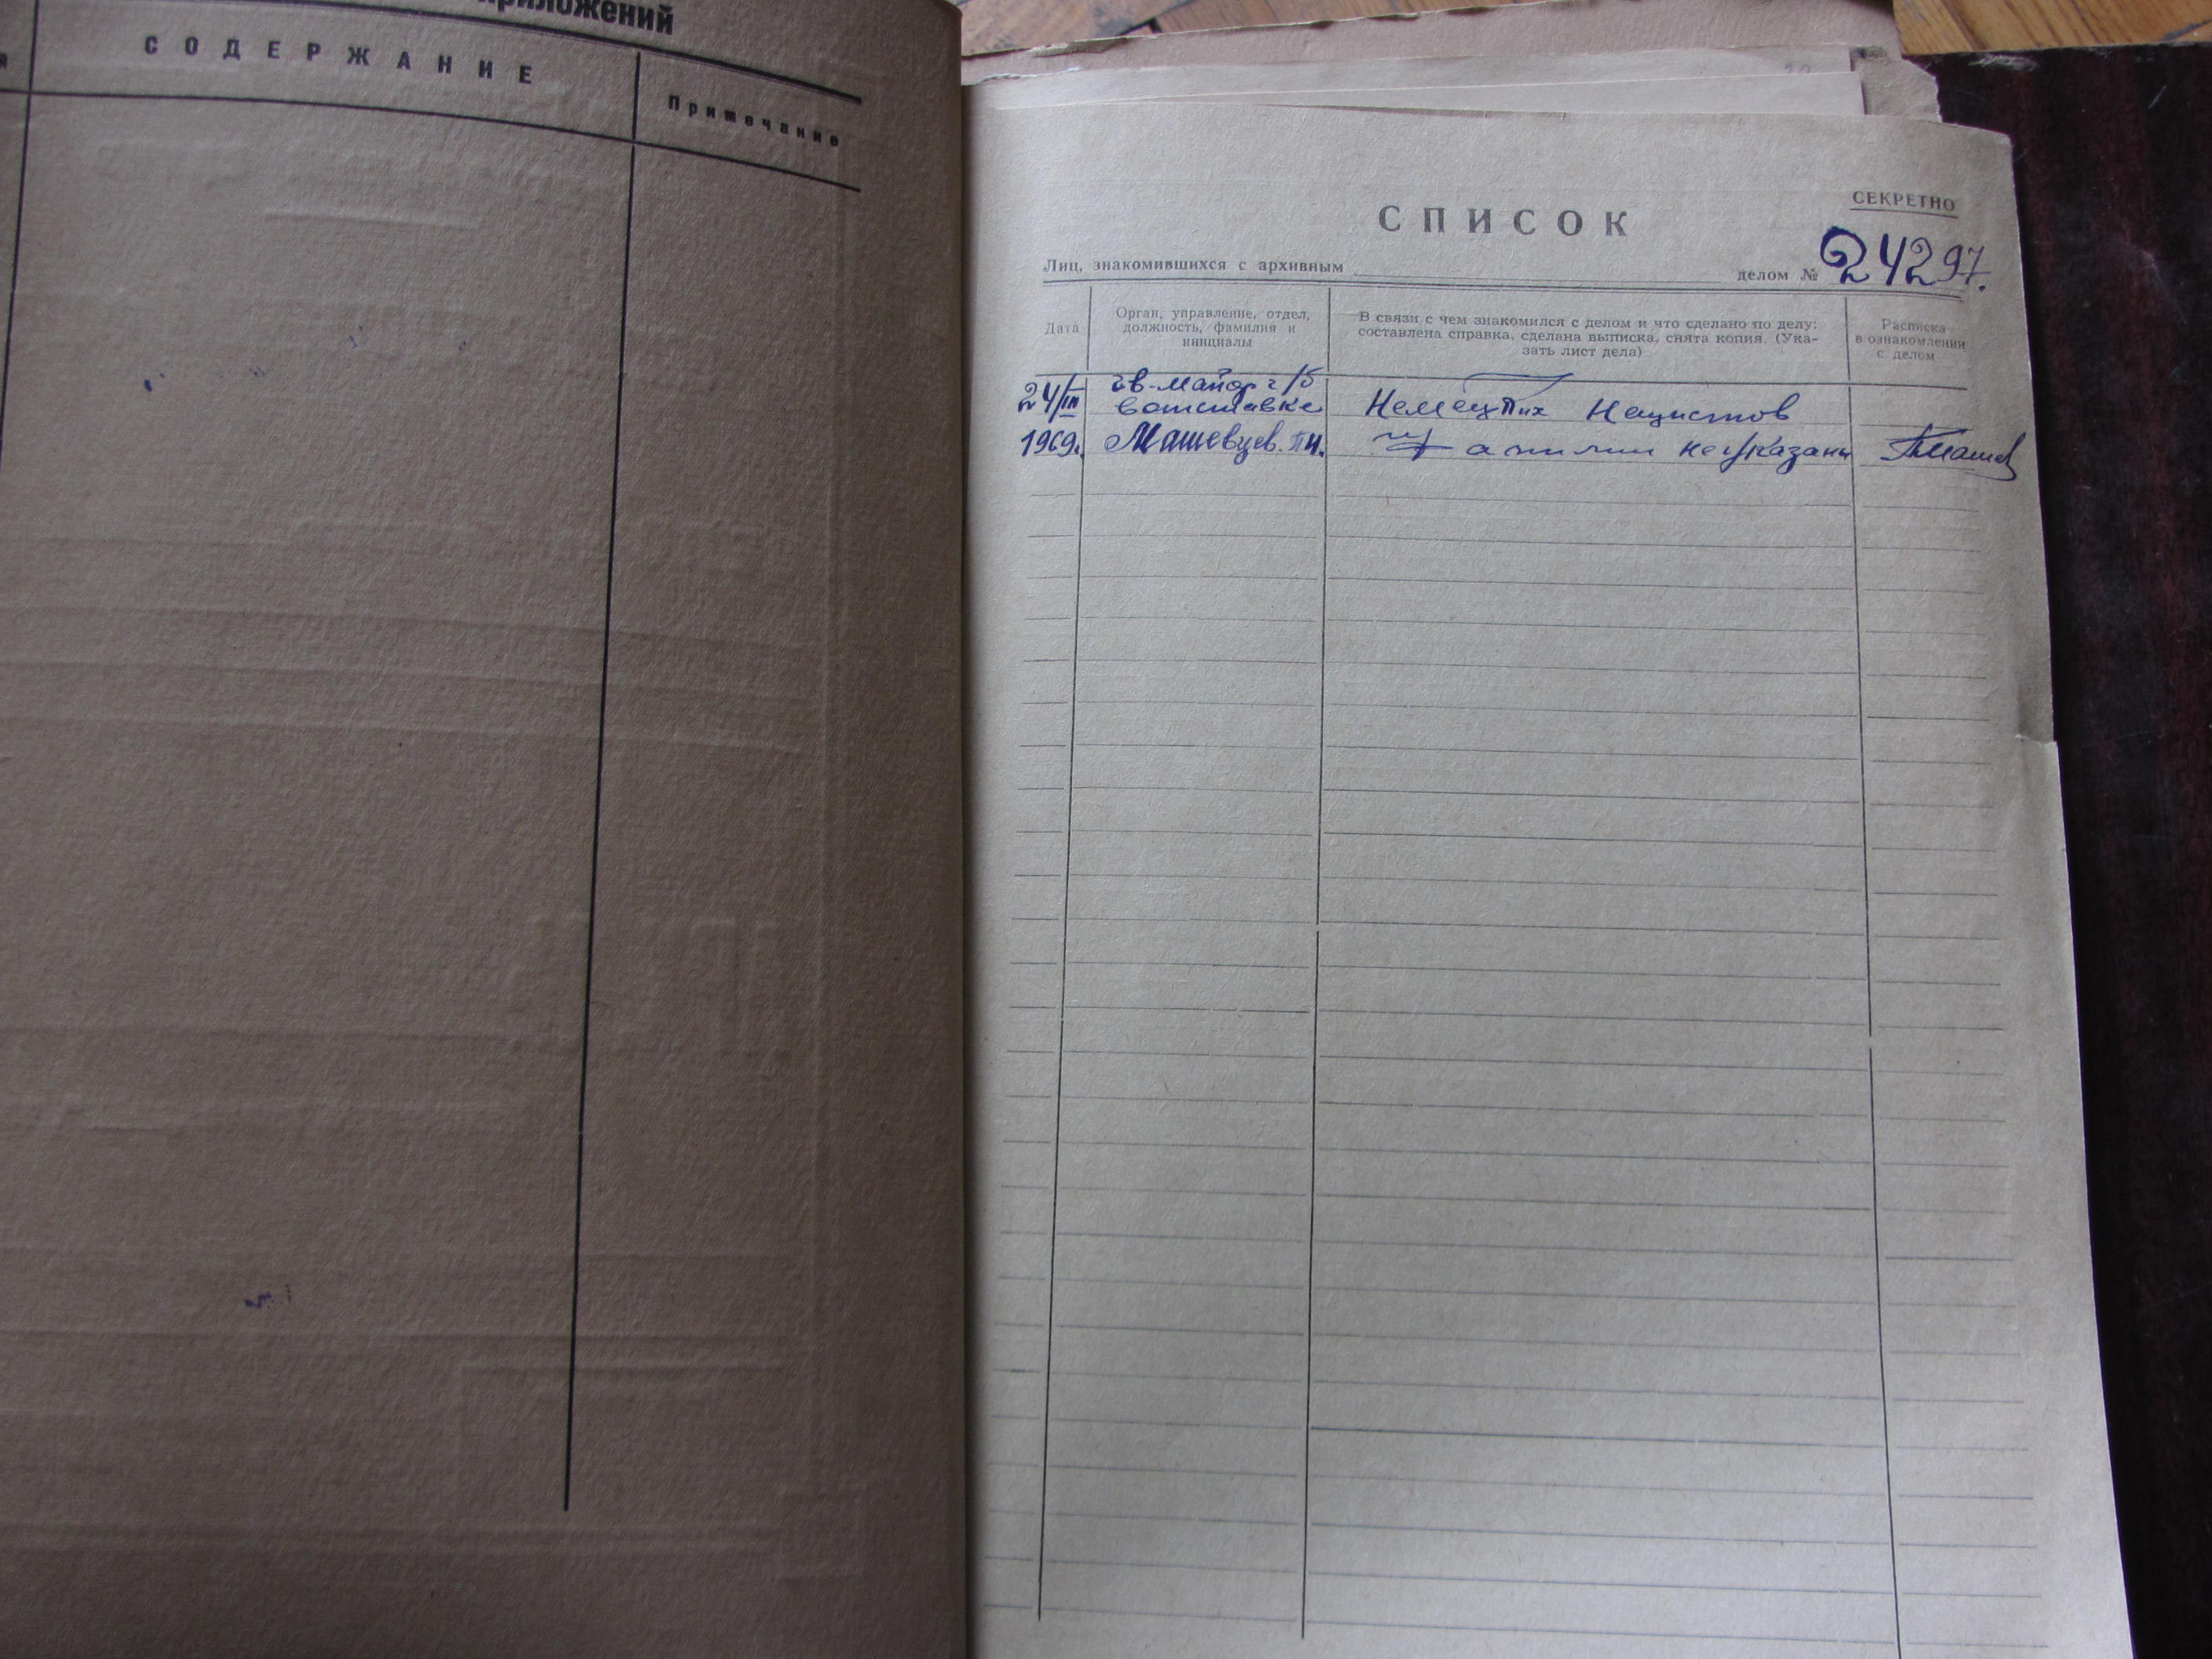 приложений
СОДЕРЖАНИЕ
Примечание
СЕКРЕТНО
СПИСОК
Лиц, знакомившихся с архивным делом № 24297.
Дата
Орган, управление, отдел,
должность, фамилия и
инициалы
В связи с чем знакомился с делом и что сделано по делу:
составлена справка, сделана выписка, снята копия. (Ука-
зать лист дела)
Расписка
в ознакомлении
с делом
24/III гв-майор г/б
в отставке Немецких Нацистов
1969г. Машевцев. фамилии не указаны